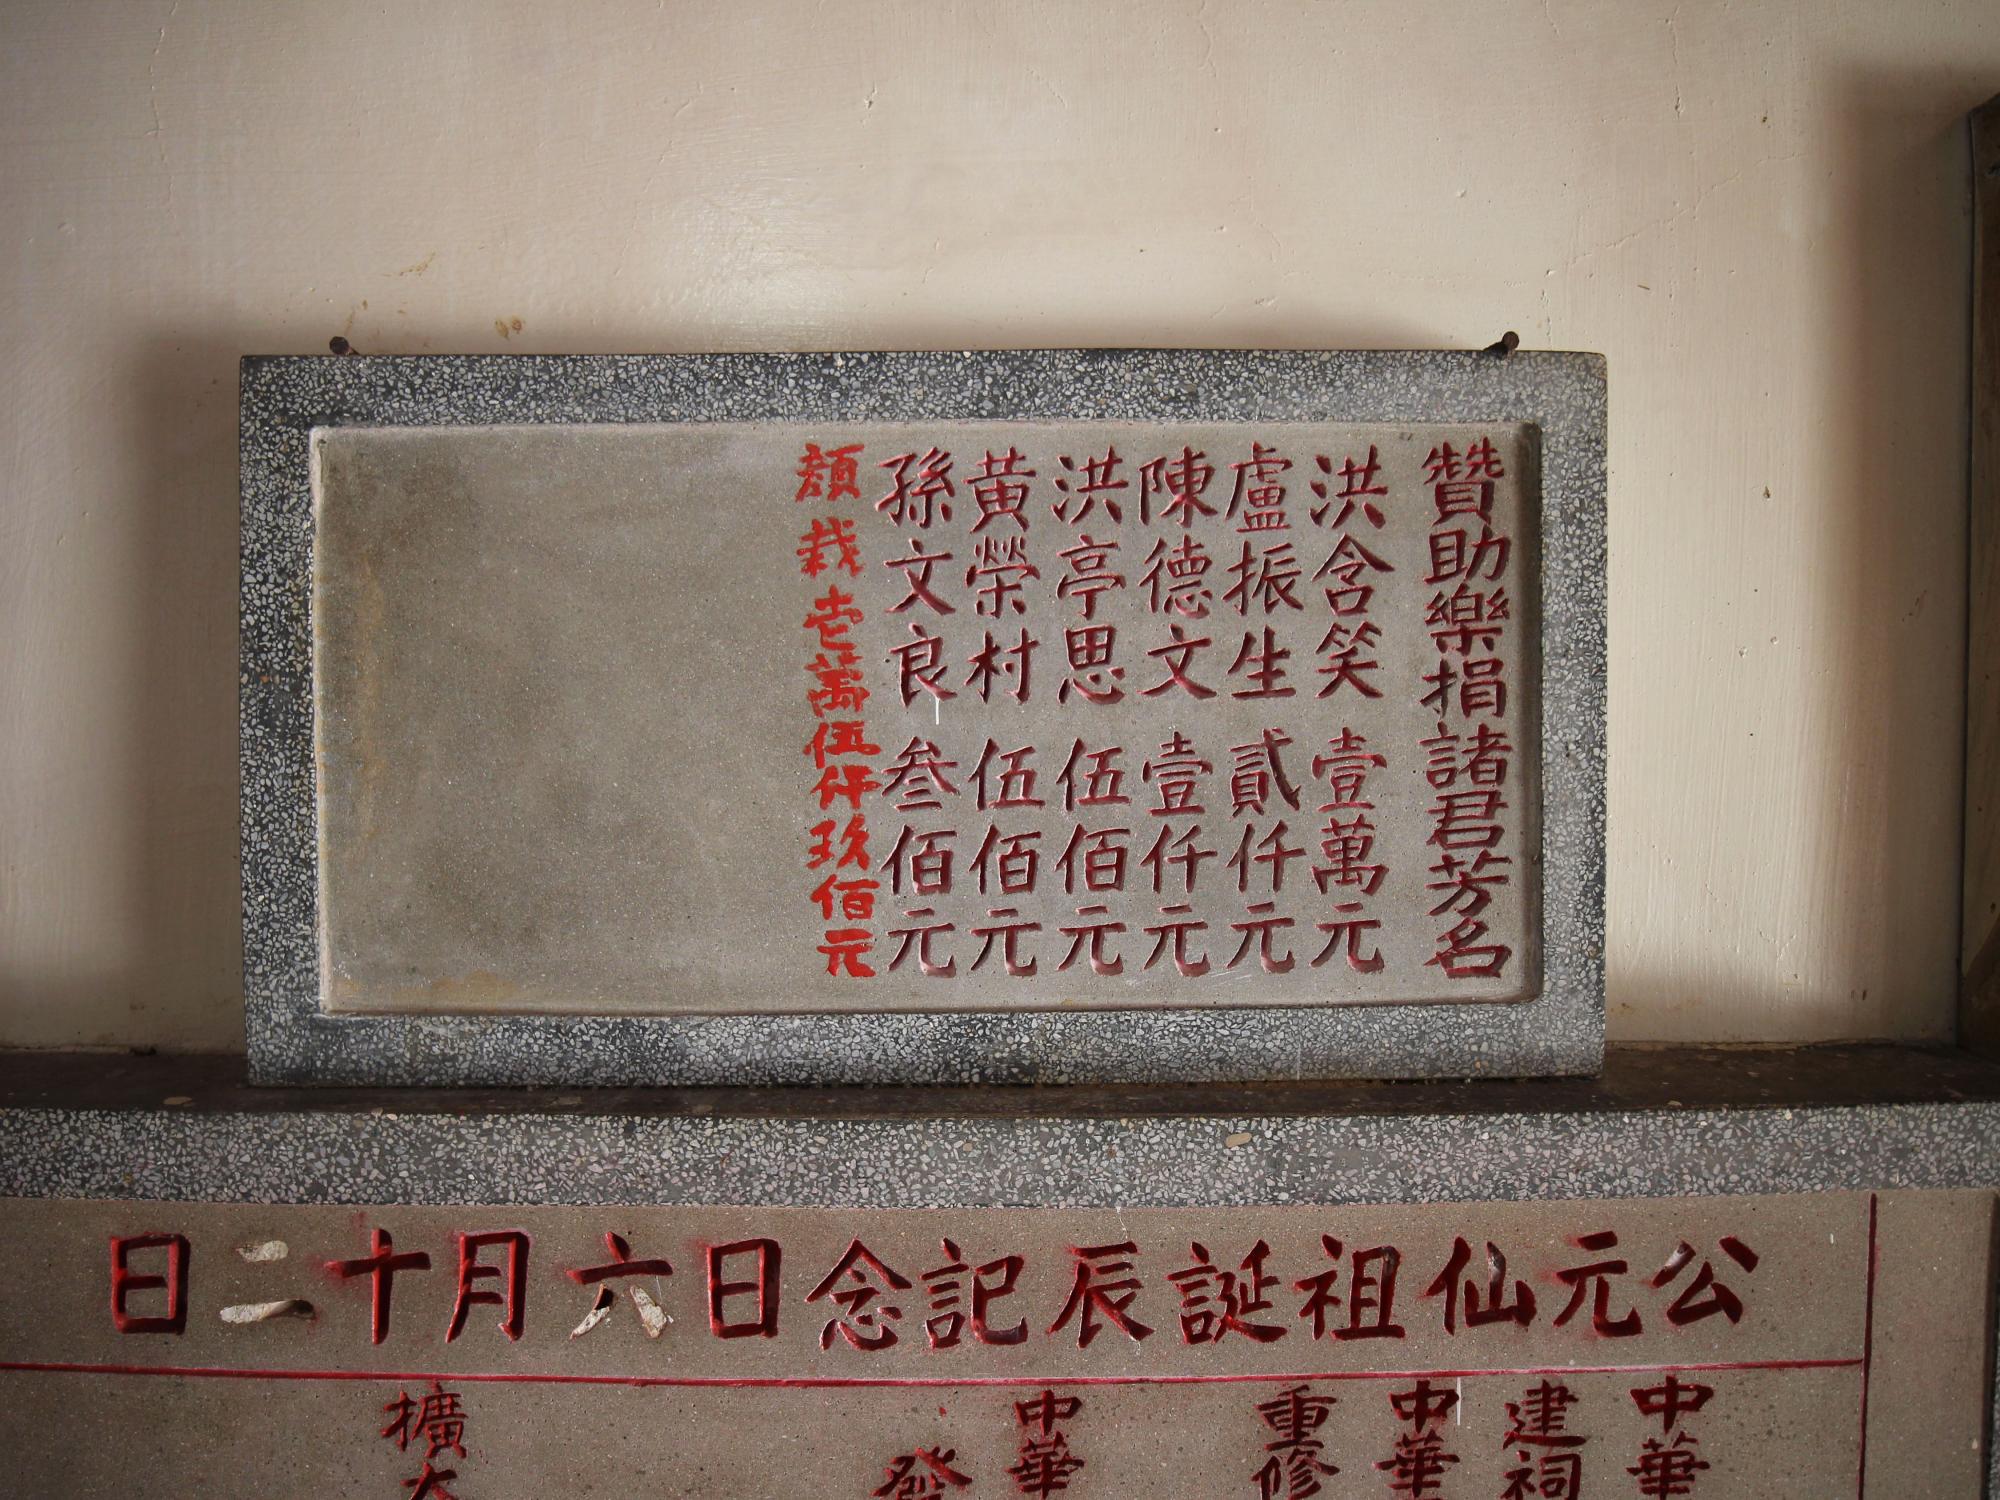 贊助樂捐諸君芳名
洪含笑 壹萬元
盧振生 貳仟元
陳德文 壹仟元
洪亭思 伍佰元
黃榮村 伍佰元
孫文良 叁佰元
顏栽壱萬伍仟玖佰元
公元仙祖誕辰記念日六月十二日
中華
建祠
中華
重修
中華
發
擴大